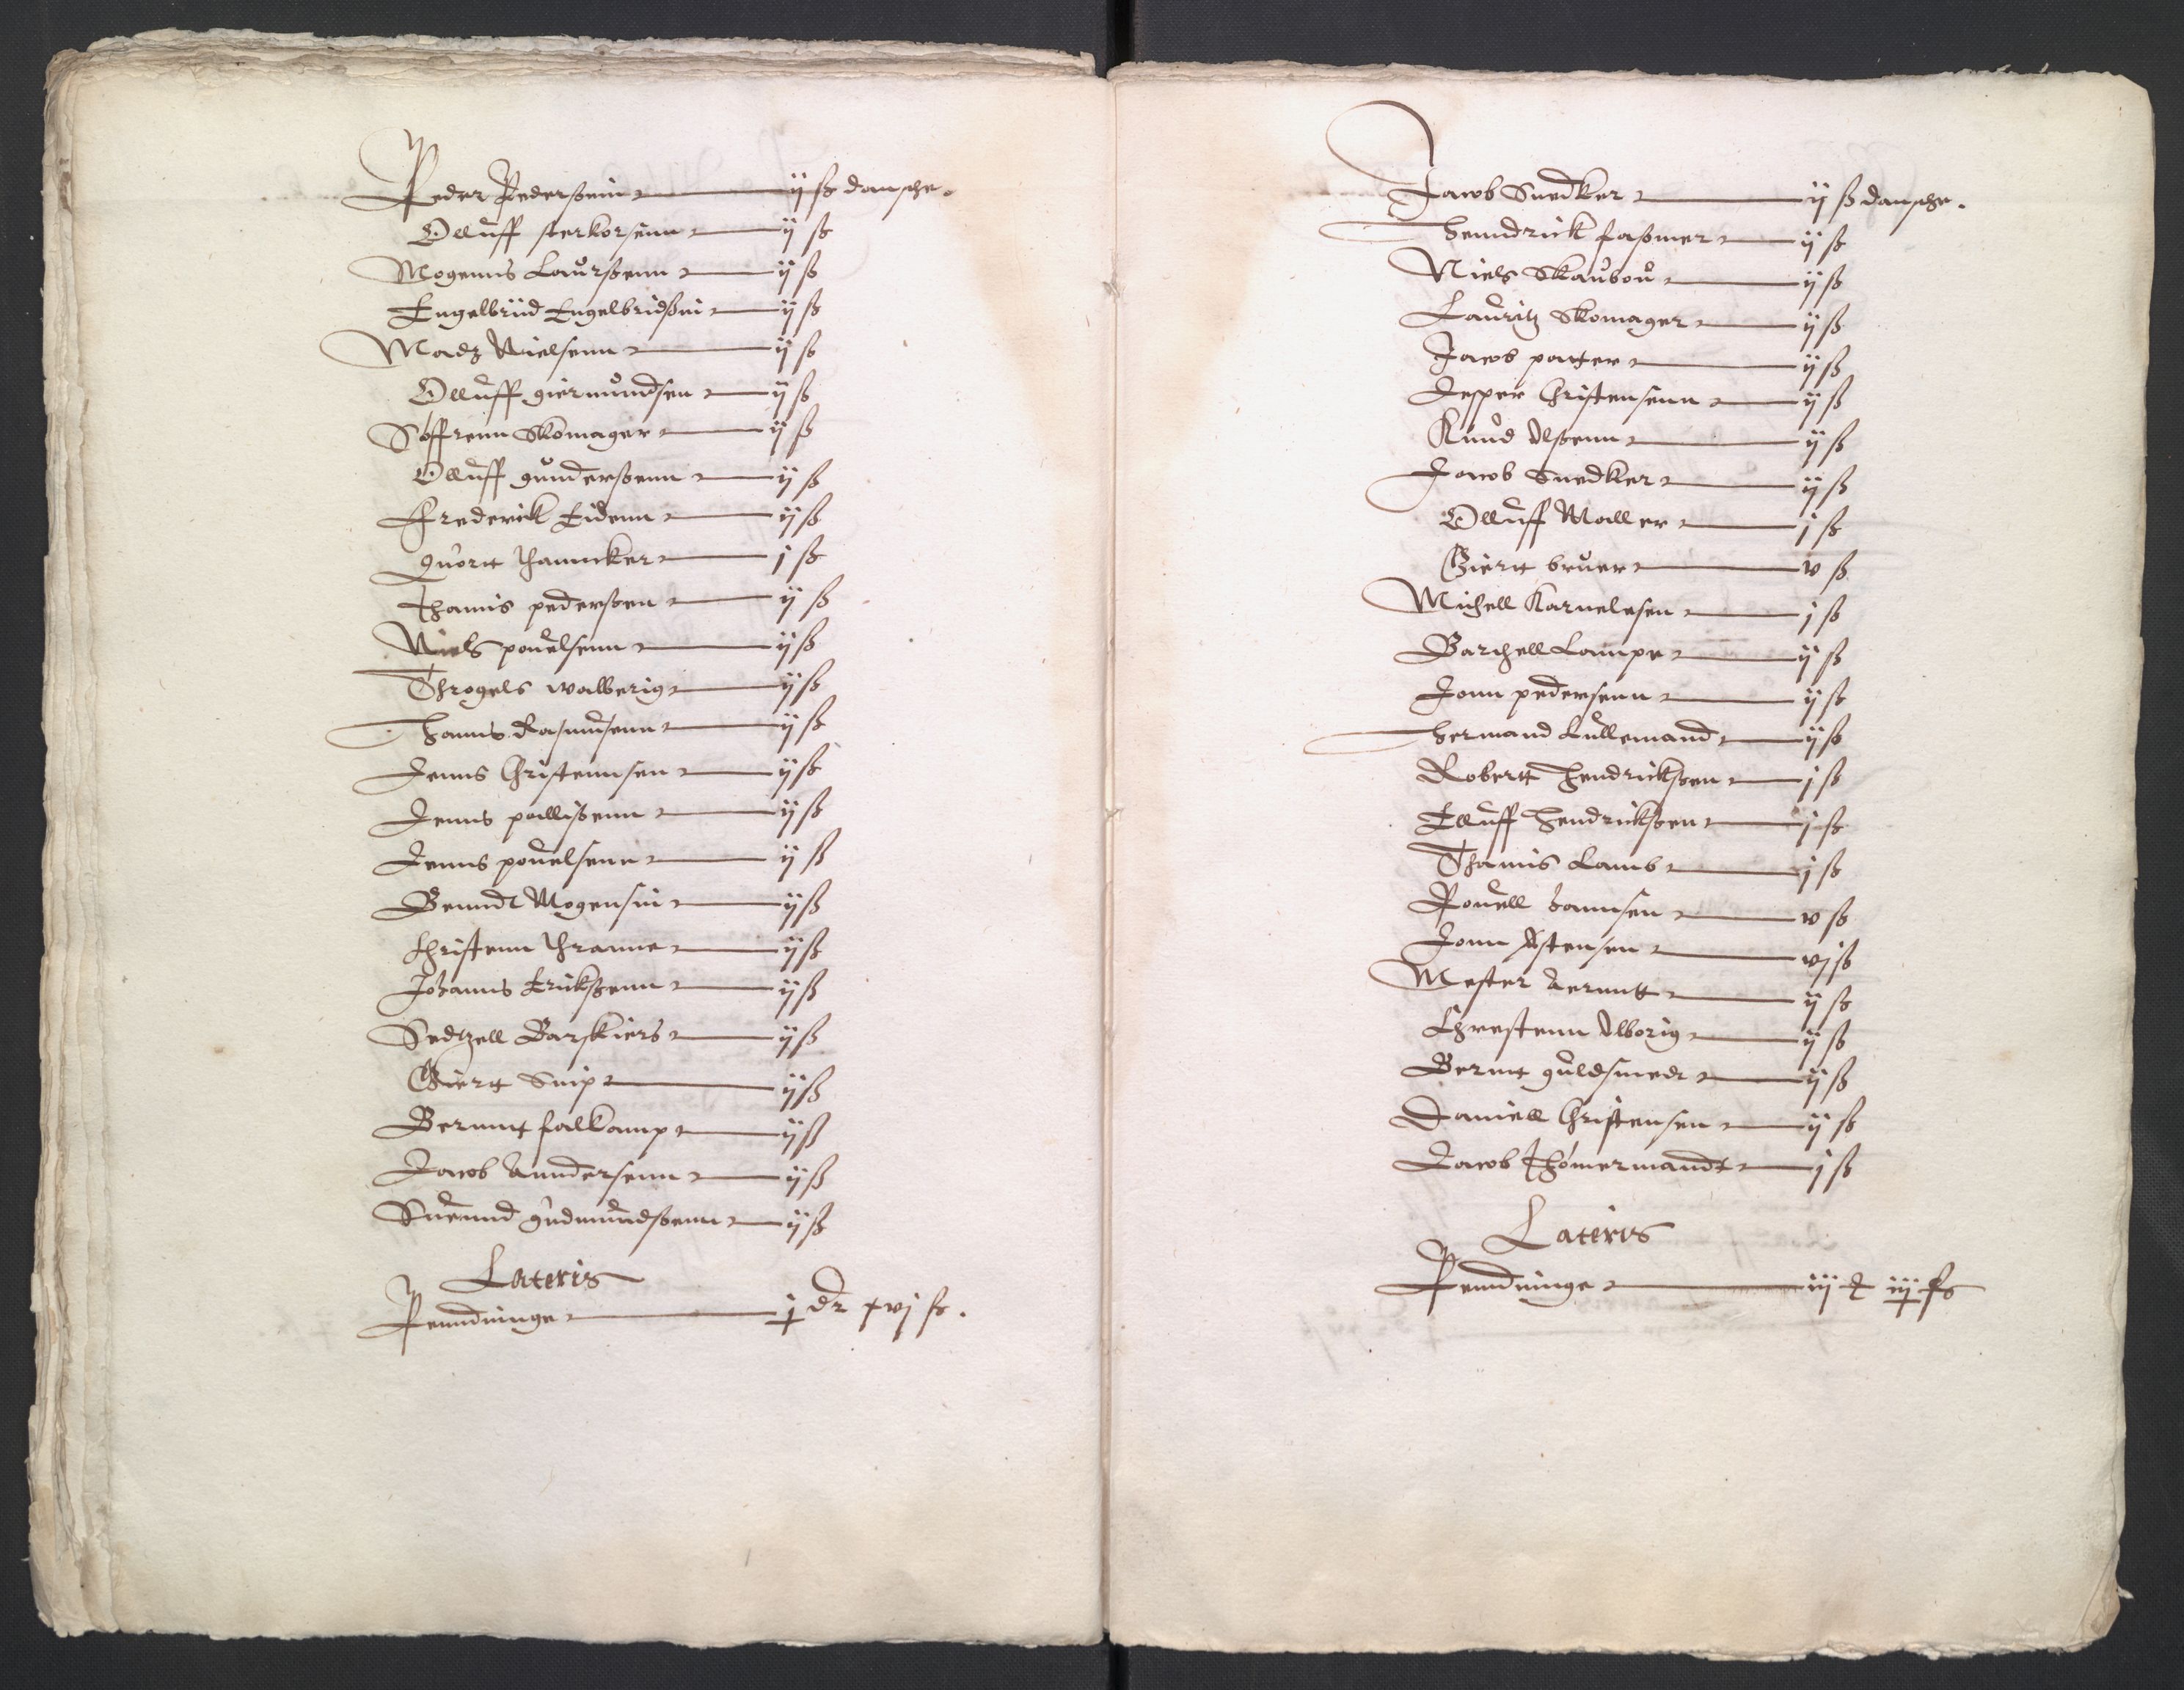 Peder Pederssenn ij ß danske.
Olluff sterkorsenn ij ß
Mogenns Laurssenn ij ß
Engelbrid Engelbridssenn ij ß
Madz Nielsenn ij ß
Olluff giermundsen ij ß
Söffrenn Skomager ij ß
Olluff gunderssenn ij ß
Frederick Eidenn ij ß
Quortt j ß
Thamis pederssen ij ß
Niels pouelsenn ij ß
Throgels walberig ij ß
Hanns Rasmudsenn ij ß
Jenns Christennsen ij ß
Jenns pallissenn ij ß
Jenns pouelsenn ij ß
Benndt Mogensen ij ß
Christenn Thranne ij ß
Johanns Erickssenn ij ß
Sedzell Barskiers ij ß
Giertt Snip ij ß
Berntt falkamp ij ß
Jacob Anndersenn ij ß
Suennd gudmundssenn ij ß
Lateris
Penndninge j dr xvj ß.
Jacob Snedker ij ß danske.
Henndrick fassmer ij ß
Niels Skaubou ij ß
Lauritz Skomager ij ß
Jacob potter ij ß
Jesper Christensenn ij ß
Knud Olssenn ij ß
Jacob Snedker ij ß
Olluff Maller j ß
Giertt bruer v ß
Michell Karnelesen j ß
Barchell Lampe ij ß
Jonn pedersenn ij ß
Hermand Kullemand ij ß
Robertt Hendrickssen j ß
Elluff Hendrickssen j ß
Thamis Lamb j ß
Pouell Hannsen v ß
Jonn Astensen vj ß
Mester Berntt ij ß
Chrestenn Alborig ij ß
Berntt guldsmedt ij ß
Daniell Christensen ij ß
Jacob Thömermandt j ß
Lateris
Penndninge iij iij ß